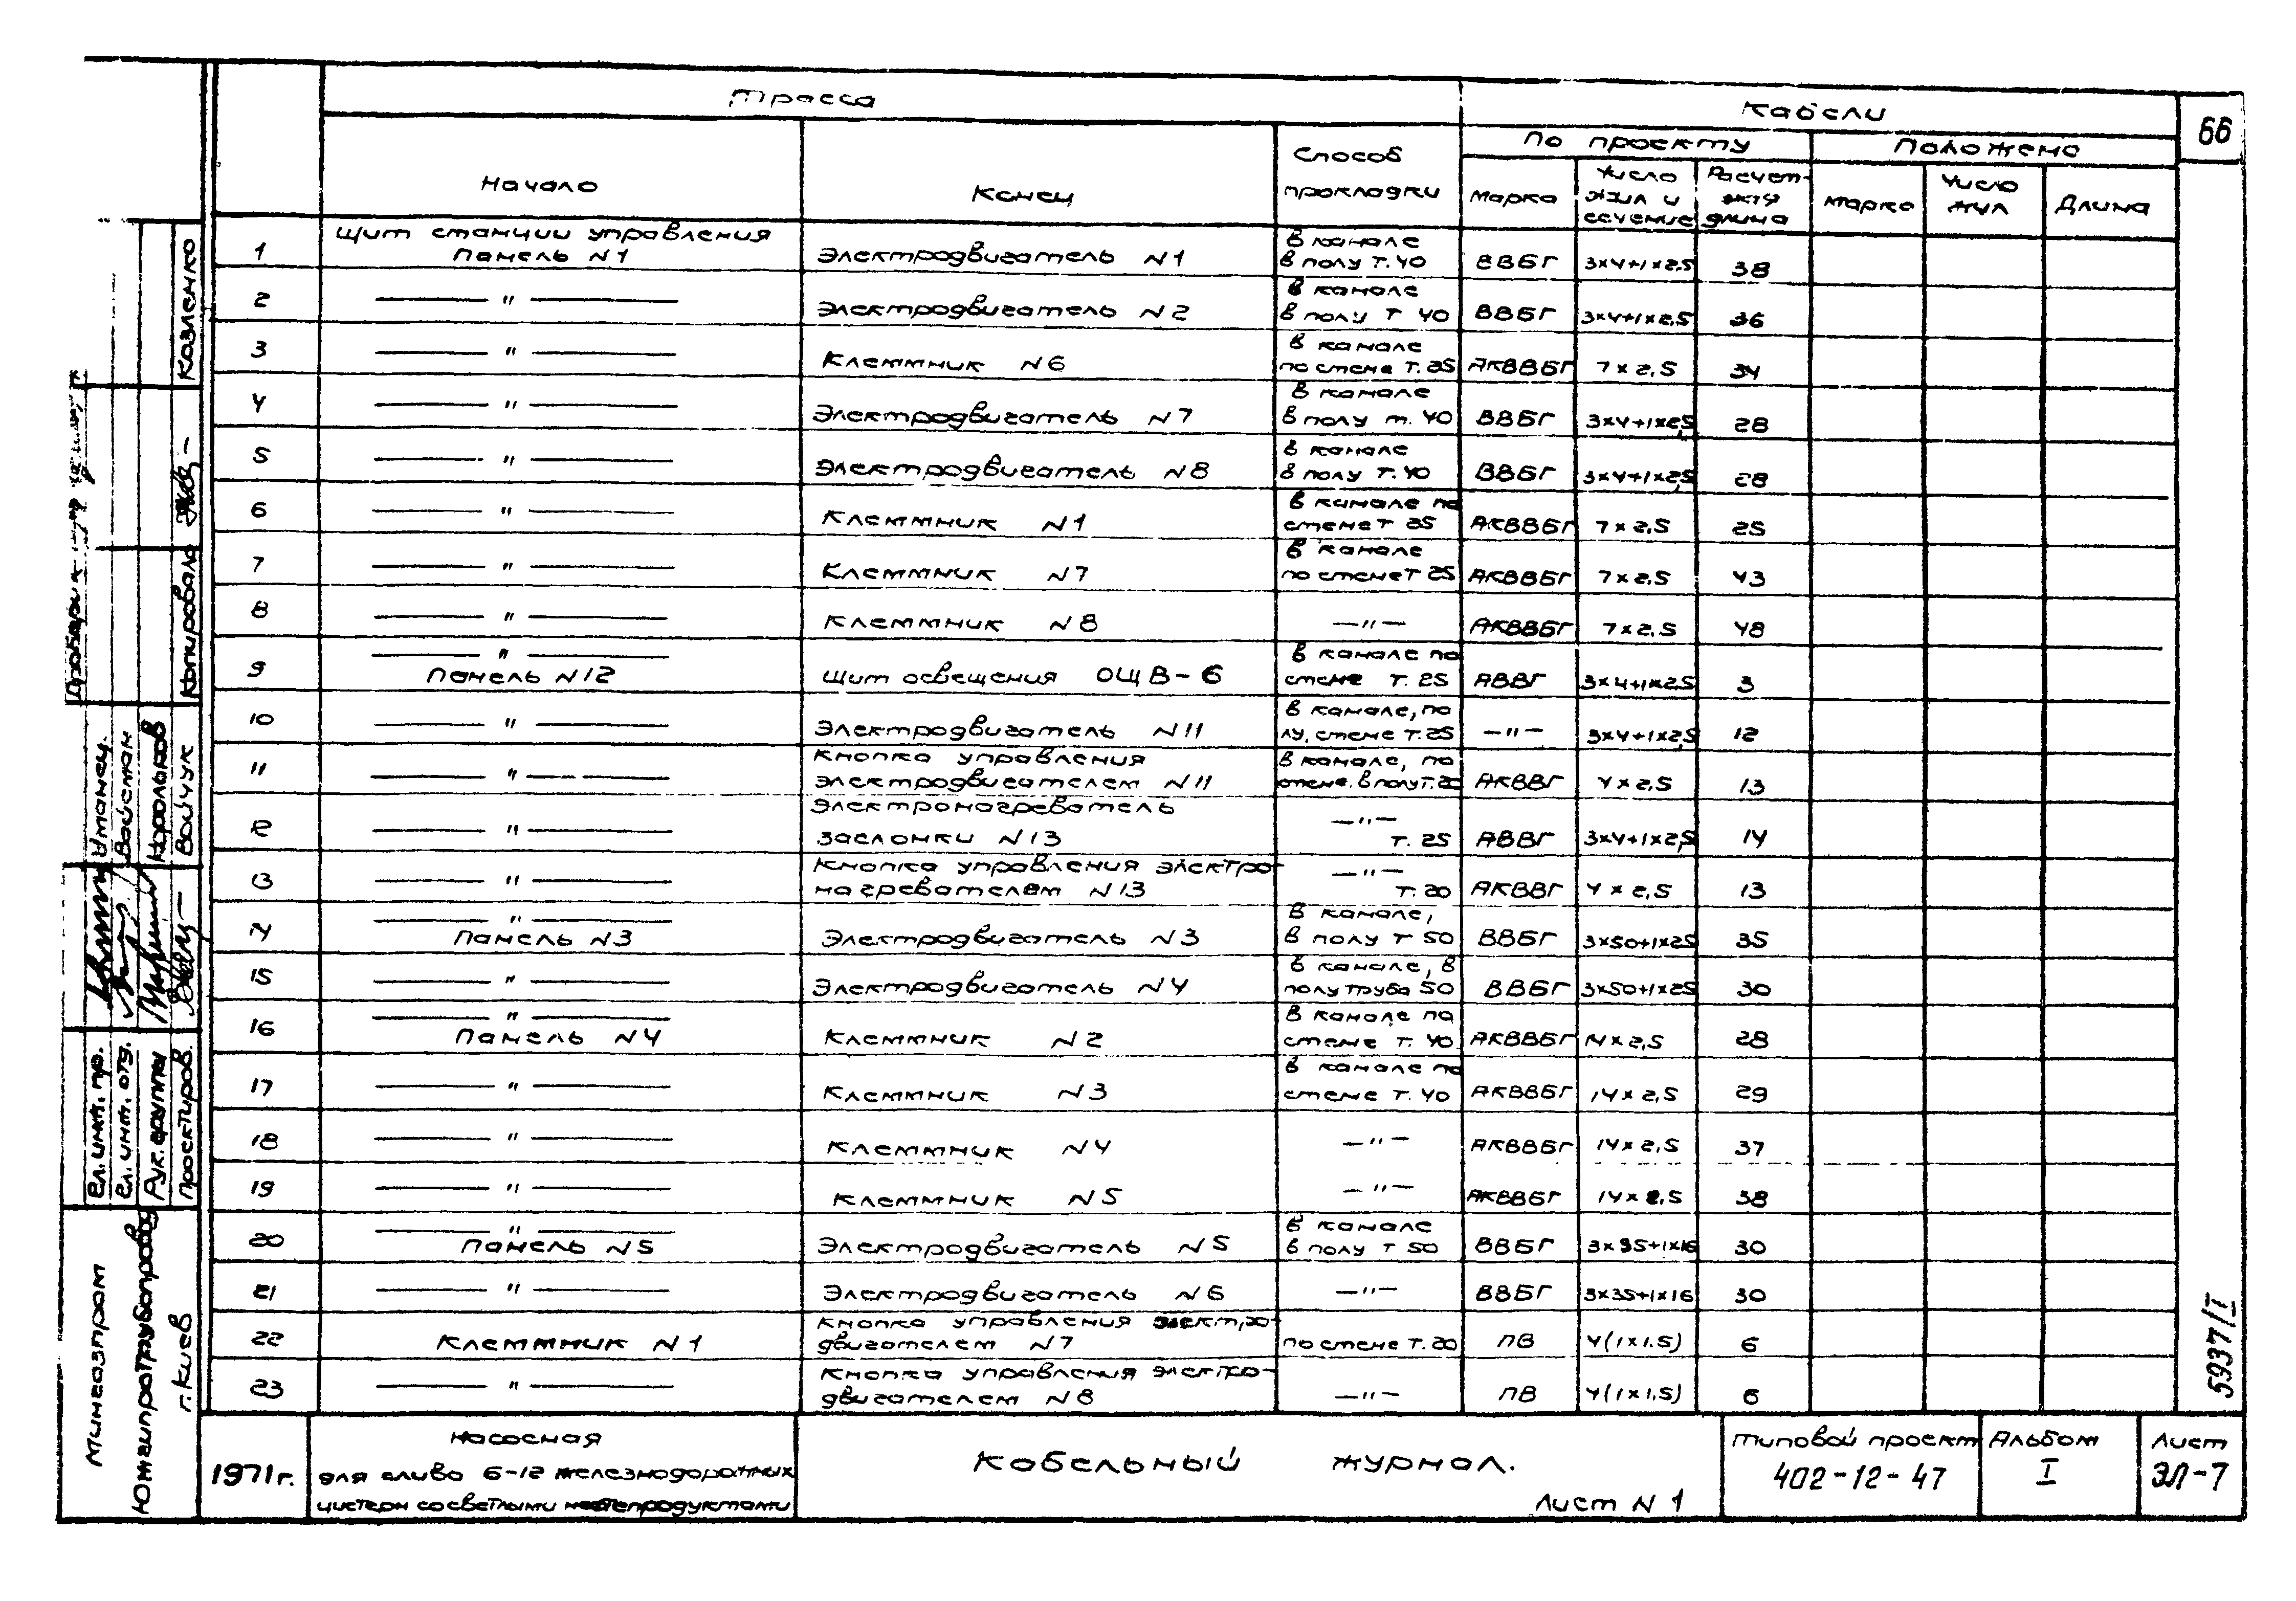 Трасса
Кабели
66
Начало
Конец
Способ
прокладки
По проекту
Положено
Марка
Число
жил и
сечение
Расчет-
ная
длина
Марка
Число
жил
Длина
1 Щит станции управления
Панель N1 Электродвигатель N1 В канале
в полу Т.40 ВВБГ 3×4+1×2,5 38
2 — " — Электродвигатель N2 В канале
в полу Т 40 ВВБГ 3×4+1×2,5 36
3 — " — Клеммник N6 В канале
по стене Т.25 АКВВБГ 7×2,5 34
4 — " — Электродвигатель N7 В канале
в полу т.40 ВВБГ 3×4+1×2,5 28
5 — " — Электродвигатель N8 В канале
в полу Т.40 ВВБГ 3×4+1×2,5 28
6 — " — Клеммник N1 В канале по
стене Т 25 АКВВБГ 7×2,5 25
7 — " — Клеммник N7 В канале
по стене Т 25 АКВВБГ 7×2,5 43
8 — " — Клеммник N8 — " — АКВВБГ 7×2,5 48
9 — " —
Панель N12 Щит освещения ОЩВ-6 В канале по
стене Т.25 АВВГ 3×4+1×2,5 3
10 — " — Электродвигатель N11 В канале, по
лу, стене Т.25 — " — 3×4+1×2,5 12
11 — " — Кнопка управления
электродвигателем N11 В канале, по
стене. в полу Т.20 АКВВГ 4×2,5 13
12 — " — Электронагреватель
заслонки N13 — " —
Т.25 АВВГ 3×4+1×2,5 14
13 — " — Кнопка управления электро-
нагревателем N13 — " —
Т.20 АКВВГ 4×2,5 13
14 — " —
Панель N3 Электродвигатель N3 В канале,
в полу Т 50 ВВБГ 3×50+1×25 35
15 — " — Электродвигатель N4 В канале, в
полу труба 50 ВВБГ 3×50+1×25 30
16 — " —
Панель N4 Клеммник N2 В канале по
стене Т.40 АКВВБГ 14×2,5 28
17 — " — Клеммник N3 В канале по
стене Т.40 АКВВБГ 14×2,5 29
18 — " — Клеммник N4 — " — АКВВБГ 14×2,5 37
19 — " — Клеммник N5 — " — АКВВБГ 14×2,5 38
20 — " —
Панель N5 Электродвигатель N5 В канале
в полу Т 50 ВВБГ 3×35+1×16 30
21 — " — Электродвигатель N6 — " — ВВБГ 3×35+1×16 30
22 Клеммник N1 Кнопка управления электро-
двигателем N7 по стене Т.20 ПВ 4(1×1.5) 6
23 — " — Кнопка управления электро-
двигателем N8 — " — ПВ 4(1×1,5) 6
1971г.
Насосная
для слива 6-12 железнодорожных
цистерн со светлыми нефтепродуктами
Кабельный журнал.
Лист N 1
Типовой проект
402-12-47
Альбом
I
Лист
ЭЛ-7
5937/I
Мингазпром
Южгипротрубопровод
г.Киев
Гл. инж. пр.
Гл. инж. отд.
Рук. группы
Проектиров.
Уманец
Вайсман
Корольков
Войчук
Копировала
Козленко